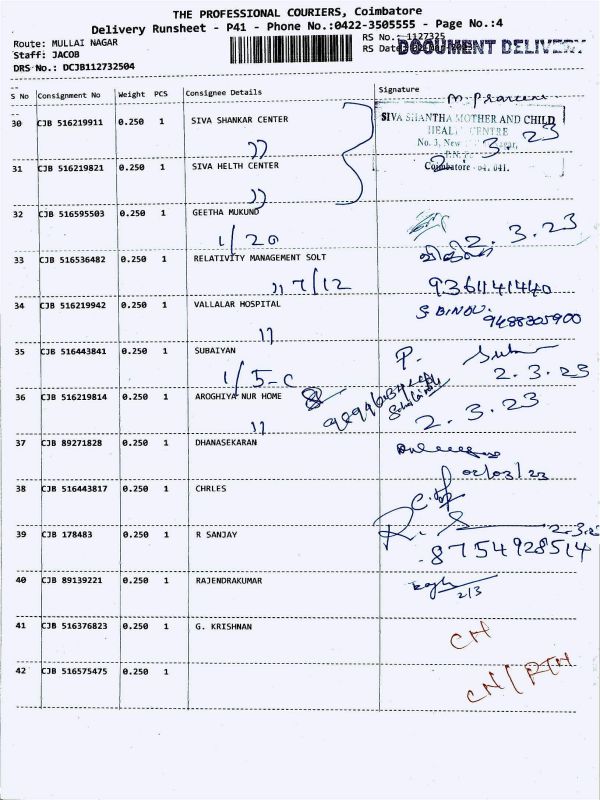 THE PROFESSIONAL COURIERS, Coimbatore
Delivery Runsheet - P41 - Phone No.:0422-3505555 - Page No.:4
Route: MULLAI NAGAR RS No.: 1127325
Staff: JACOB RS Date DOCUMENT DELIVERY
DRS No.: DCJB112732504
S No Consignment No Weight PCS Consignee Details Signature
30 CJB 516219911 0.250 1 SIVA SHANKAR CENTER
SIVA SHANTHA MOTHER AND CHILD
HEALTH CENTRE
No. 3, New
Coimbatore - 641 041.
2. 3. 23
31 CJB 516219821 0.250 1 SIVA HELTH CENTER
32 CJB 516595503 0.250 1 GEETHA MUKUND
1/20 2. 3. 23
33 CJB 516536482 0.250 1 RELATIVITY MANAGEMENT SOLT
7/12 9361141440
34 CJB 516219942 0.250 1 VALLALAR HOSPITAL S BINDU.
9488305900
35 CJB 516443841 0.250 1 SUBAIYAN P.
1/5-C 2. 3. 23
36 CJB 516219814 0.250 1 AROGHIYA NUR HOME
2. 3. 23
37 CJB 89271828 0.250 1 DHANASEKARAN
02/03/23
38 CJB 516443817 0.250 1 CHRLES
39 CJB 178483 0.250 1 R SANJAY
8754928514
40 CJB 89139221 0.250 1 RAJENDRAKUMAR
2/3
41 CJB 516376823 0.250 1 G. KRISHNAN CN
42 CJB 516575475 0.250 1 CN/RTN